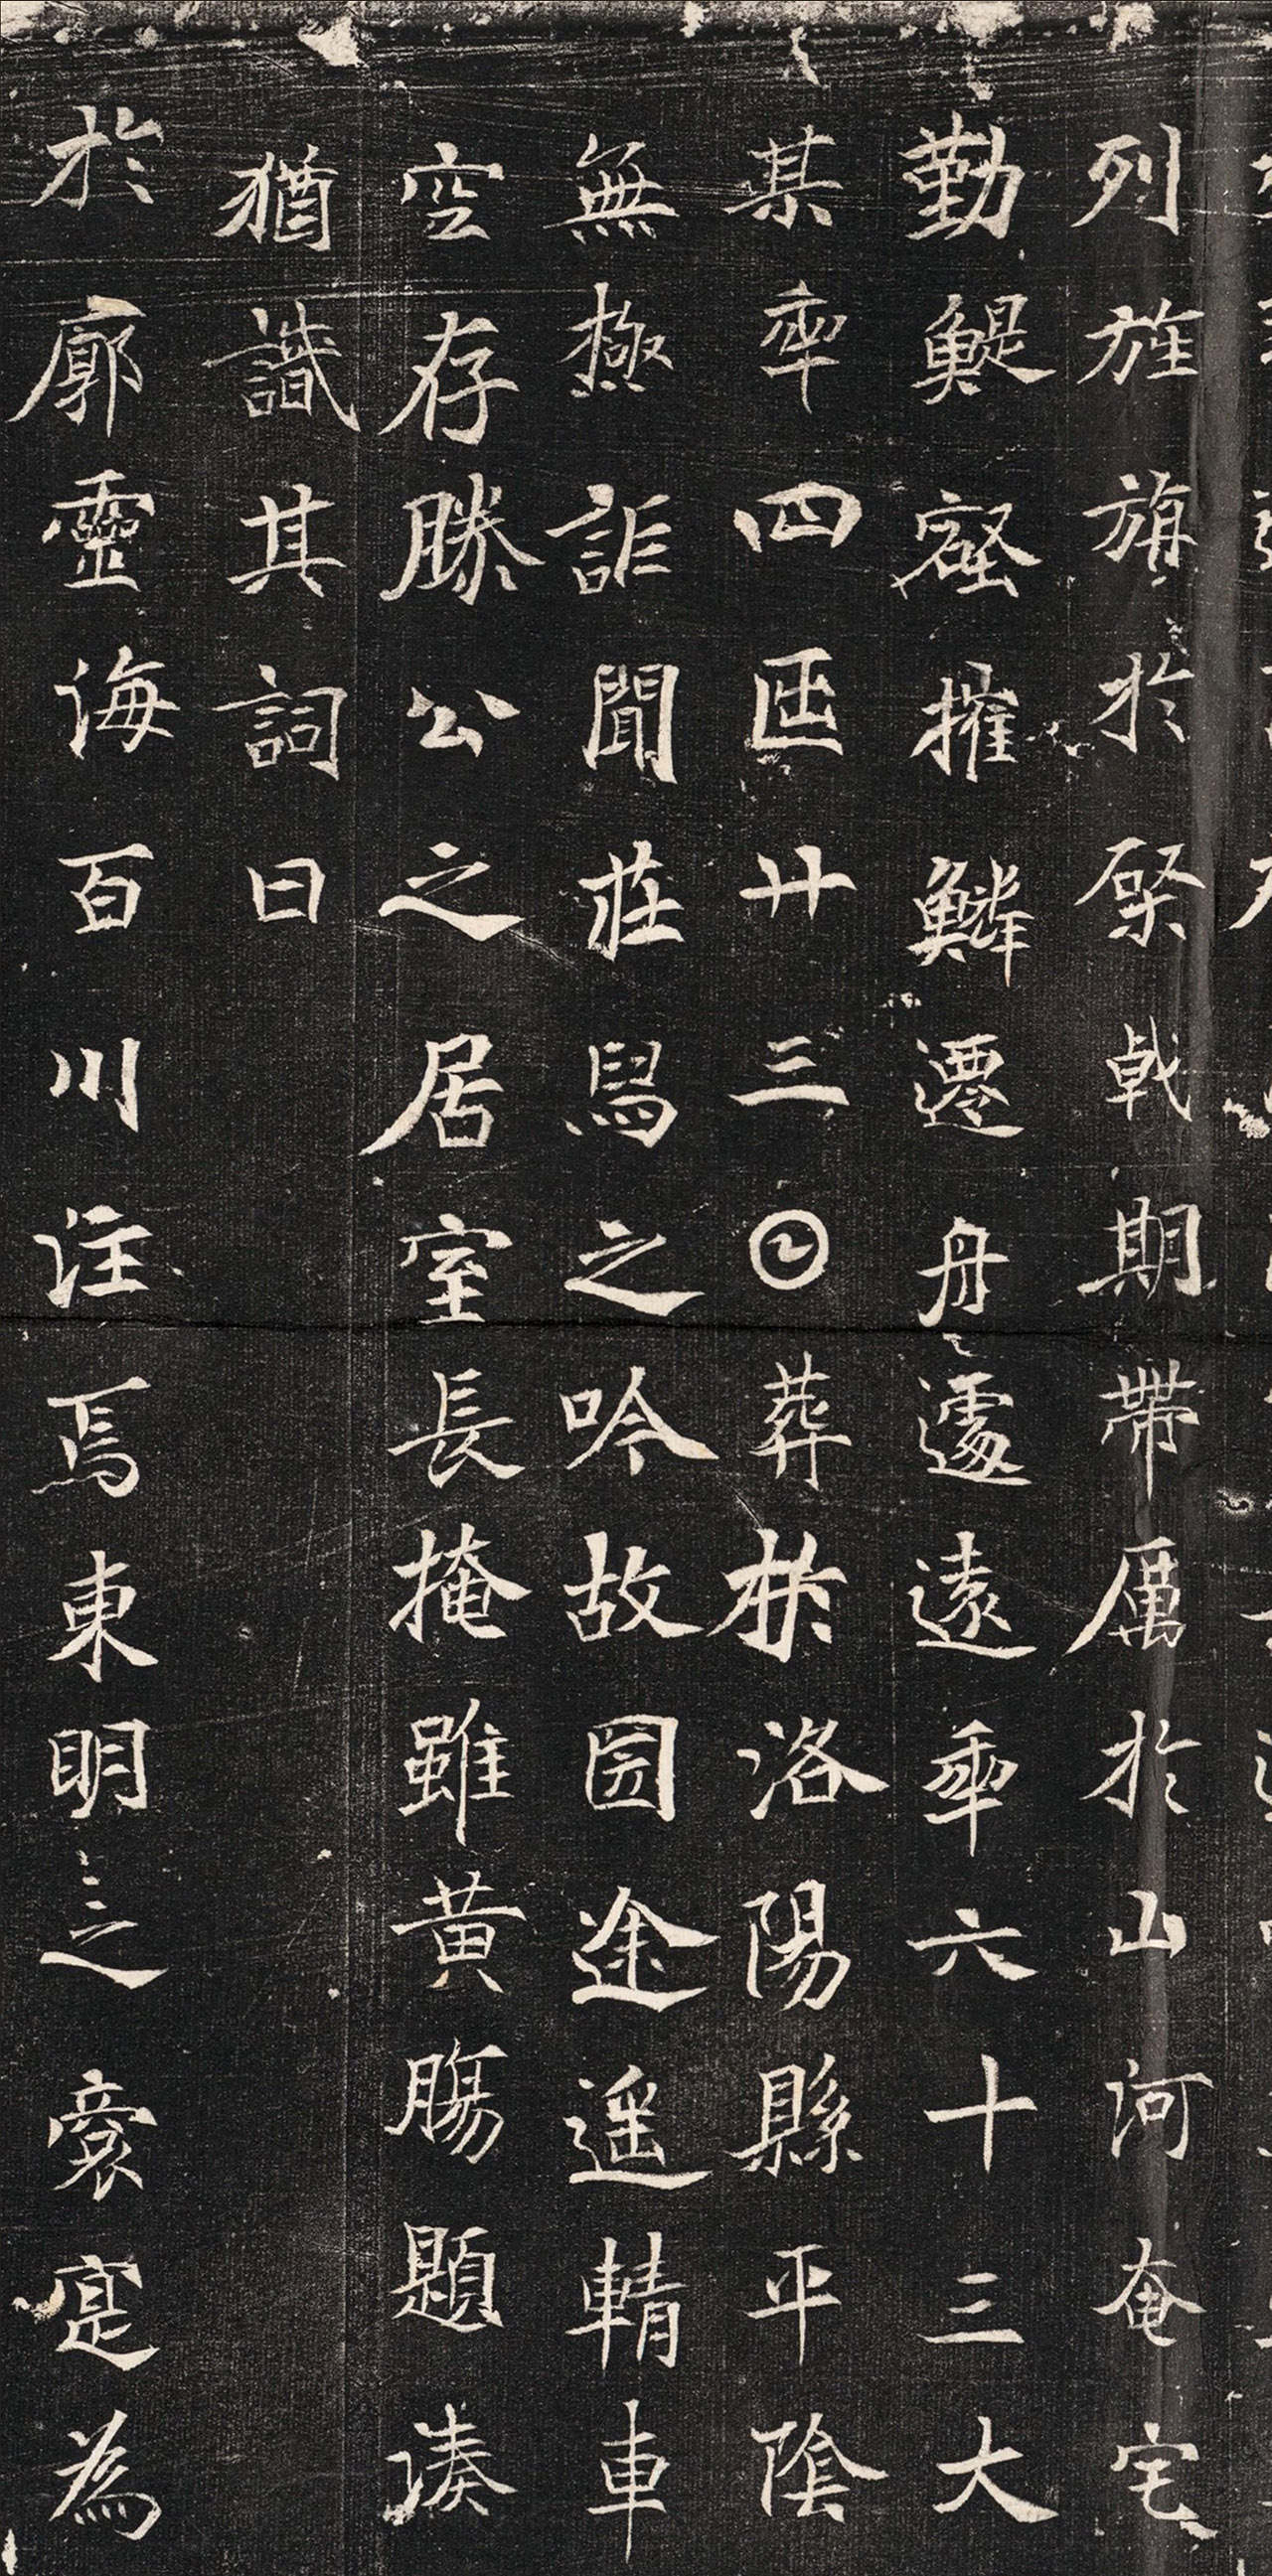 列旌旗於棨戟期帶厲於山河奄宅
勤鯷壑摧鱗遷舟遽遠秊六十三大
某秊四𠥱廿三𡆠葬於洛陽縣平陰
無極詎聞莊舄之吟故圀途遥輤車
空存滕公之居室長掩雖黃腸題湊
猶識其詞曰
於廓靈海百川注焉東明之裔寔為